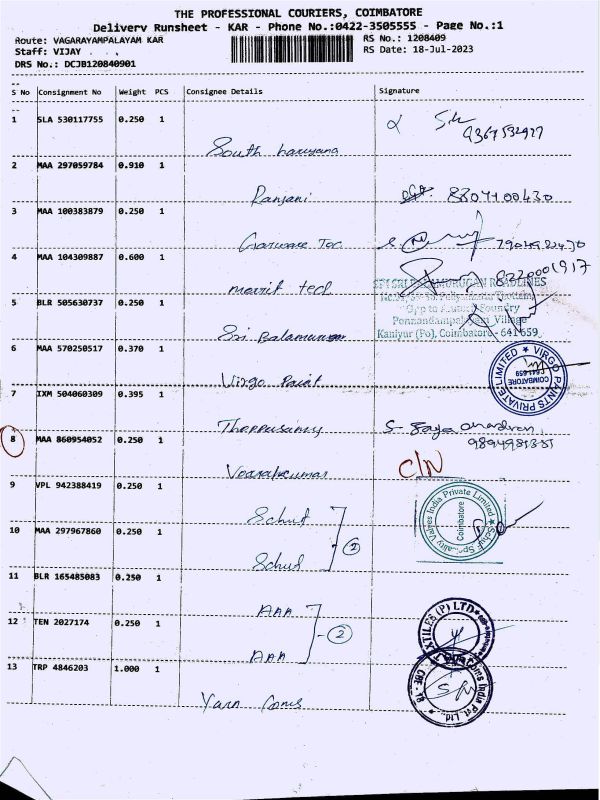 THE PROFESSIONAL COURIERS, COIMBATORE
Delivery Runsheet - KAR - Phone No.:0422-3505555 - Page No.:1
Route: VAGARAYAMPALAYAM KAR
RS No.: 1208409
Staff: VIJAY . .
RS Date: 18-Jul-2023
DRS No.: DCJB120840901
S No Consignment No Weight PCS Consignee Details Signature
1 SLA 530117755 0.250 1
South haruyana
2 MAA 297059784 0.910 1
Ranjani 8807400430
3 MAA 100383879 0.250 1
Garware Tec
4 MAA 104309887 0.600 1
marrit tech 8220001917
SRI BALAMURUGAN ROADLINES
5 BLR 505630737 0.250 1
Ponnandampalayam Village
Kaniyur (Po), Coimbatore - 641 659
Sri Balamurugan
6 MAA 570250517 0.370 1
Virgo Paint
VIRGO PAINTS PRIVATE LIMITED ★
COIMBATORE 641 659
7 IXM 504060309 0.395 1
Thappusamy
8 MAA 860954052 0.250 1
C/N
Veerakumar
9 VPL 942388419 0.250 1
Schuf
Valves India Private Limited ★
Coimbatore
10 MAA 297967860 0.250 1
②
Schuf
11 BLR 165485083 0.250 1
AAA
12 TEN 2027174 0.250 1
②
TEXTILES (P) LTD
AAA
13 TRP 4846203 1.000 1
Yarn Coms
Coms India Pvt. Ltd.